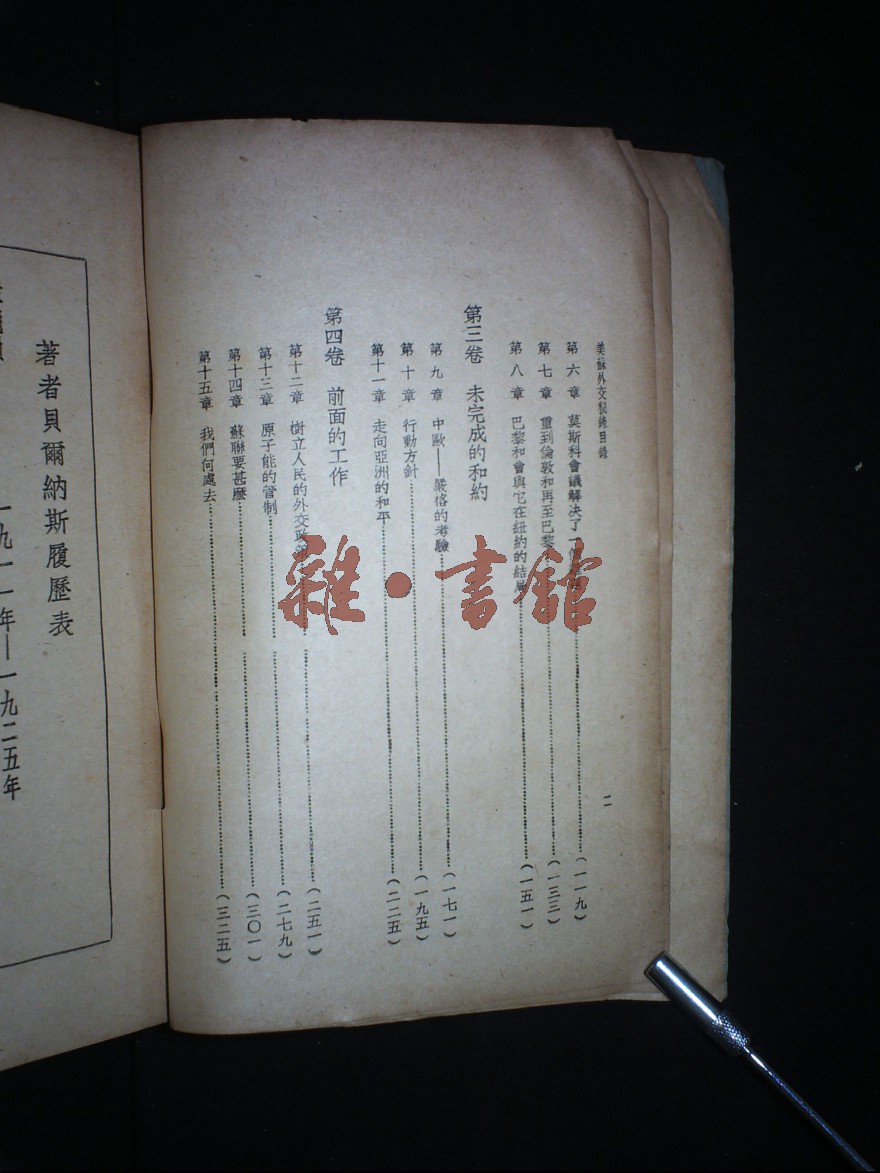 美蘇外交秘錄目錄
二
第六章 莫斯科會議解决了一
(一一九)
第七章 重到倫敦和再至巴黎
(一三三)
第八章 巴黎和會與它在紐約的結
(一五一)
第三卷 未完成的和約
第九章 中歐——嚴格的考驗
(一七一)
第十章 行動方針
(一九五)
第十一章 走向亞洲的和平
(二二五)
第四卷 前面的工作
第十二章 樹立人民的外交政
(二五一)
第十三章 原子能的管制
(二七九)
第十四章 蘇聯要甚麽
(三〇一)
第十五章 我們何處去
(三二五)
著者貝爾納斯履歷表
一九一一年—一九二五年
雜·書館